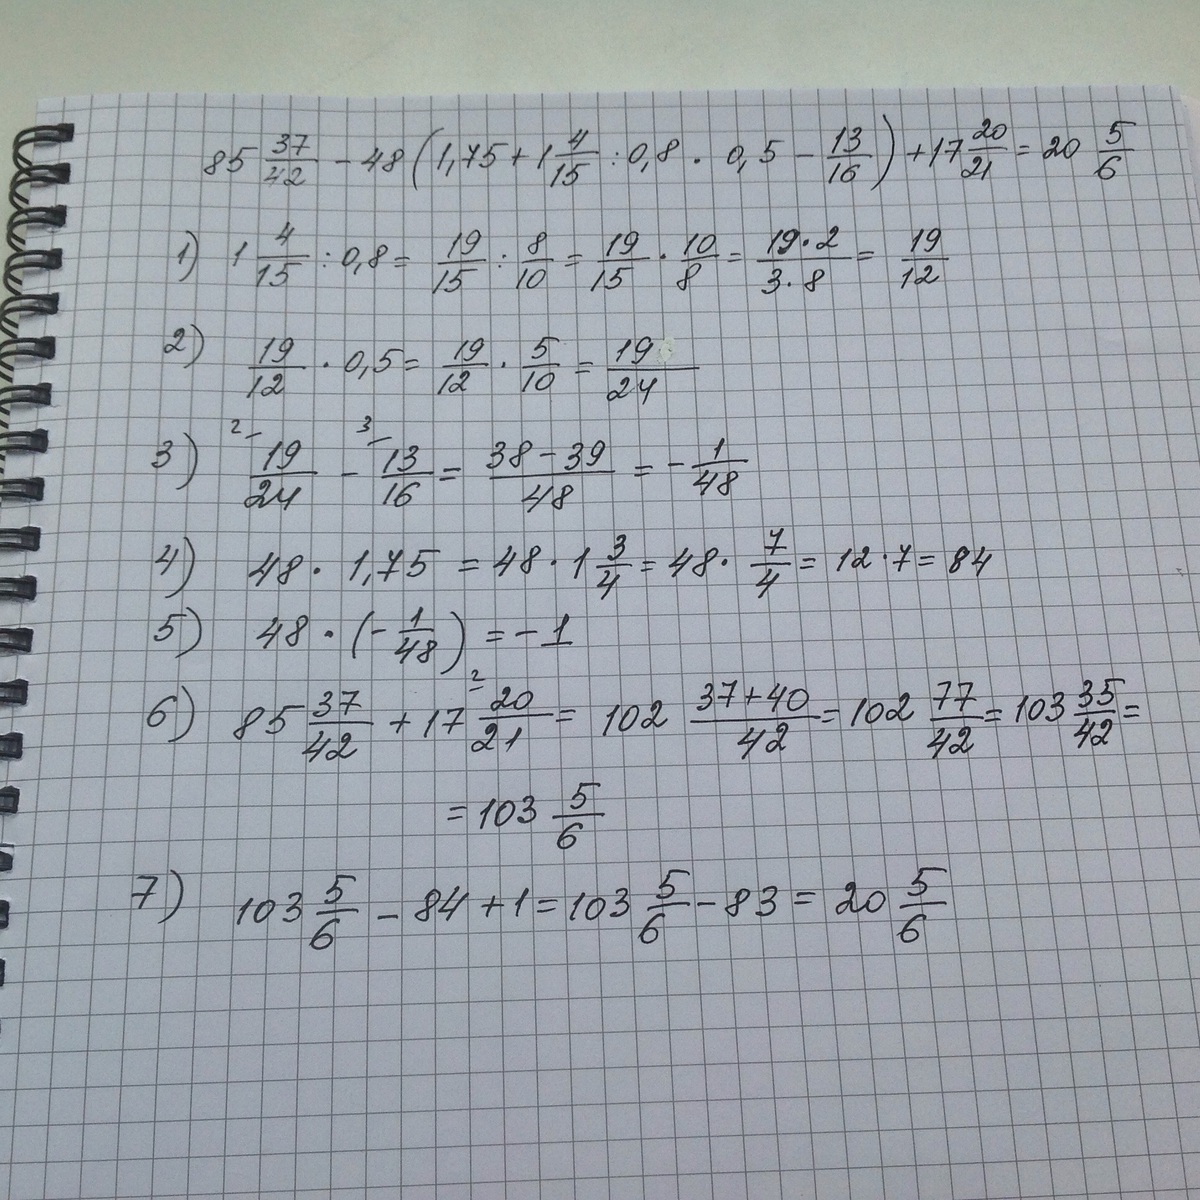 85 37/42 - 48 (1,75 + 1 4/15 : 0,8 · 0,5 - 13/16) + 17 20/21 = 20 5/6
1) 1 4/15 : 0,8 = 19/15 : 8/10 = 19/15 · 10/8 = 19·2/3·8 = 19/12
2) 19/12 · 0,5 = 19/12 · 5/10 = 19/24
3) 2- 19/24 - 3- 13/16 = 38-39/48 = - 1/48
4) 48 · 1,75 = 48 · 1 3/4 = 48 · 7/4 = 12 · 7 = 84
5) 48 · (- 1/48) = - 1
6) 85 37/42 + 17 2- 20/21 = 102 37+40/42 = 102 77/42 = 103 35/42 =
= 103 5/6
7) 103 5/6 - 84 + 1 = 103 5/6 - 83 = 20 5/6